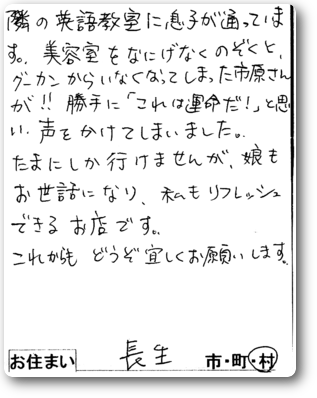 隣の英語教室に息子が通っていま
す。美容室をなにげなくのぞくと、
グーカンからいなくなってしまった市原さん
が!! 勝手に「これは運命だ!」と思
い、声をかけてしまいました。
たまにしか行けませんが、娘も
お世話になり、私もリフレッシュ
できるお店です。
これからも どうぞ宜しくお願いします。
お住まい 長生 市・町・村